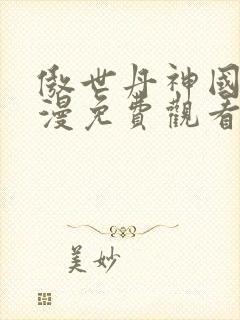 傲世丹神國
漫免費觀看
美妙